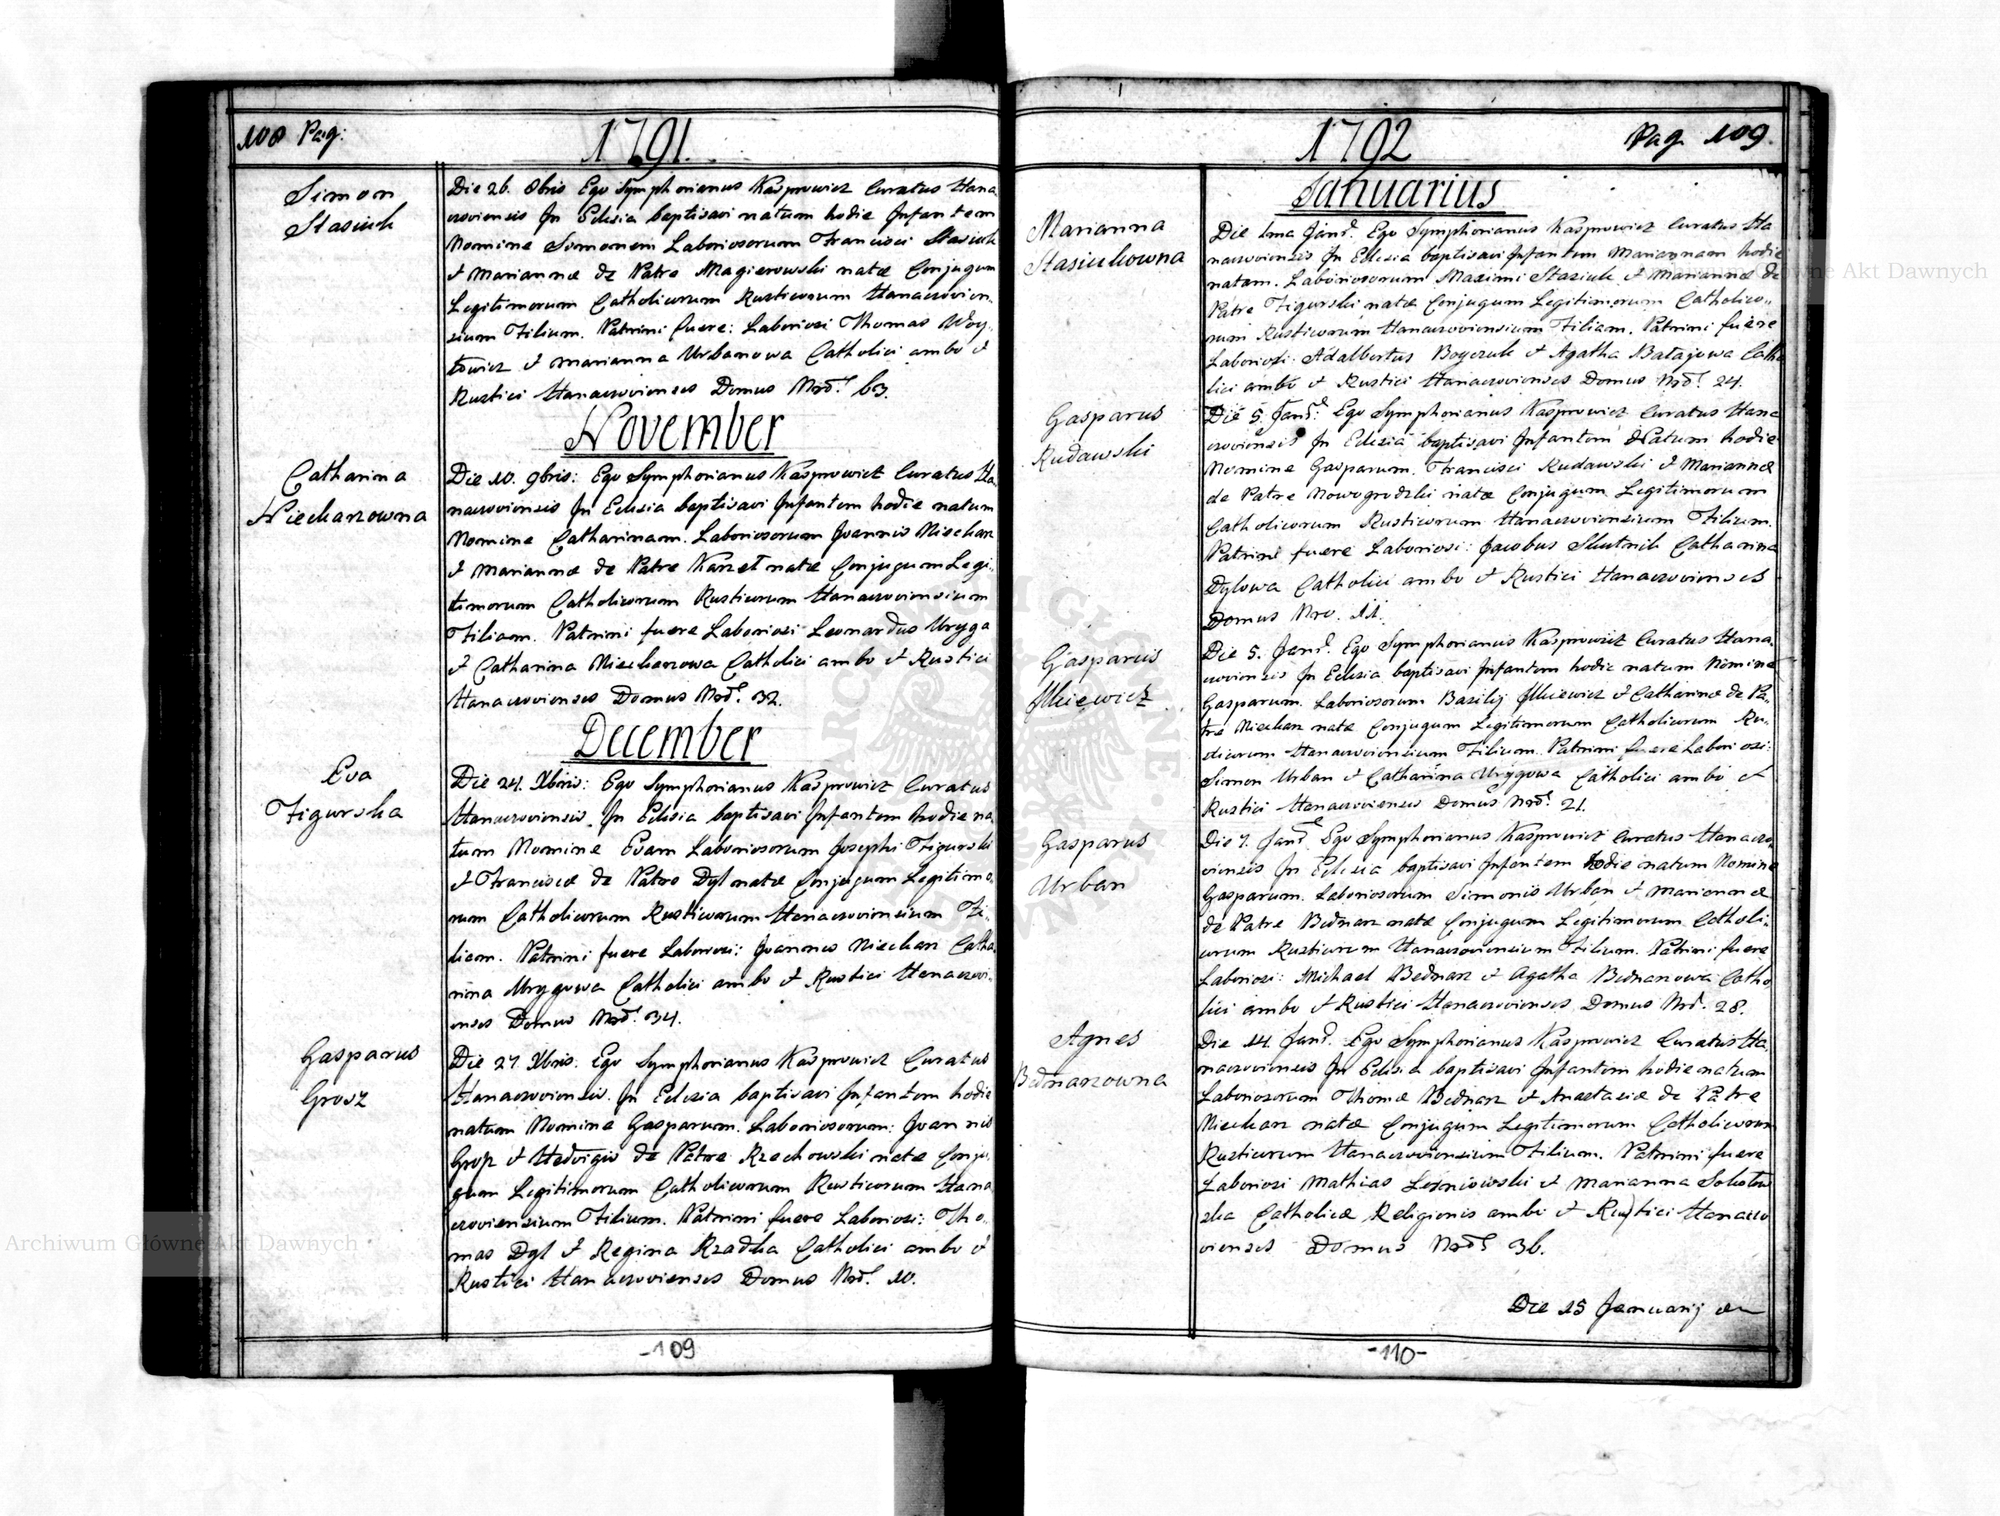 108 Pag:
1791.
Simon
Stasiuk
Die 26. 8bris Ego Symphorianus Kasprowicz Curatus Hana
czoviensis In Eclesia baptisavi natum hodie Infantem
Nomine Simonem Laboriosorum Francisci Stasiuk
et Mariannæ de Patre Magierowski natæ Conjugum
Legitimorum Catholicorum Rusticorum Hanaczovien,,
sium Filium. Patrini fuere: Laboriosi Thomas Woy,,
towicz et Marianna Urbanowa Catholici ambo et
Rustici Hanaczovienses Domus Nrd. 63.
November
Catharina
Niecharzowna
Die 10. 9bris: Ego Symphorianus Kasprowicz Curatus Ha,,
naczoviensis In Eclesia baptisavi Infantem hodie natum
Nomine Catharinam. Laboriosorum Joannis Niecharz
et Mariannæ de Patre Karzet natæ Conjugum Legi,,
timorum Catholicorum Rusticorum Hanaczoviensium
Filiam. Patrini fuere Laboriosi Leonardus Uryga
et Catharina Niecharzowa Catholici ambo et Rustici
Hanaczovienses Domus Nrd. 32.
December
Eva
Figurska
Die 24. Xbris: Ego Symphorianus Kasprowicz Curatus
Hanaczoviensis. In Eclesia baptisavi Infantem hodie na
tum Nomine Evam Laboriosorum Josephi Figurski
et Franciscæ de Patre Dyl natæ Conjugum Legitimo,,
rum Catholicorum Rusticorum Hanaczoviensium Fi,,
liam. Patrini fuere Laboriosi: Joannes Niecharz Catha,,
rina Urygowa Catholici ambo et Rustici Hanaczovi,,
enses Domus Nrd. 34.
Gasparus
Grosz
Die 27. Xbris. Ego Symphorianus Kasprowicz Curatus
Hanaczoviensis. In Eclesia baptisavi Infantem hodie
natum Nomine Gasparum. Laboriosorum: Joannis
Grosz et Hedvigis de Patre Rzechowski natæ Conju,,
gum Legitimorum Catholicorum Rusticorum Hana
czoviensium Filium. Patrini fuere Laboriosi: Tho,,
mas Dyl et Regina Rzadka Catholici ambo et
Rustici Hanaczovienses Domus Nrd. 10.
-109
1792
Pag. 109.
Januarius
Marianna
Stasiukowna
Die 1ma Janr. Ego Symphorianus Kasprowicz Curatus Ha
naczoviensis In Eclesia baptisavi Infantem Mariannam hodie
natam. Laboriosorum Maximi Stasiuk et Mariannæ de
Patre Figurski natæ Conjugum Legitimorum Catholico,,
rum Rusticorum Hanaczoviensium Filiam. Patrini fuere
Laboriosi: Adalbertus Boyczuk et Agatha Bałajowa Catho
lici ambo et Rustici Hanaczovienses Domus Nrd. 24.
Gasparus
Rudawski
Die 5. Janr: Ego Symphorianus Kasprowicz Curatus Hana
czoviensis In Eclesia baptisavi Infantem Natum hodie
Nomine Gasparum. Francisci Rudawski et Mariannæ
de Patre Nowogrodzki natæ Conjugum Legitimorum
Catholicorum Rusticorum Hanaczoviensium Filium.
Patrini fuere Laboriosi: Jacobus Skutnik Catharina
Dylowa Catholici ambo et Rustici Hanaczovienses
Domus Nro. 11.
Gasparus
Ilkiewicz
Die 5. Janr. Ego Symphorianus Kasprowicz Curatus Hana,
czoviensis In Eclesia baptisavi Infantem hodie natum Nomine
Gasparum. Laboriosorum Basilij Ilkiewicz et Catharinæ de Pa,,
tre Niecharz natæ Conjugum Legitimorum Catholicorum Ru,,
sticorum Hanaczoviensium Filium. Patrini fuere Laboriosi:
Simon Urban et Catharina Urygowa Catholici ambo et
Rustici Hanaczovienses Domus Nrd. 21.
Gasparus
Urban
Die 7. Janr. Ego Symphorianus Kasprowicz Curatus Hanaczo,
viensis In Eclesia baptisavi Infantem hodie natum Nomine
Gasparum. Laboriosorum Simonis Urban et Mariannæ
de Patre Bednarz natæ Conjugum Legitimorum Catholi,,
corum Rusticorum Hanaczoviensium Filium. Patrini fuere
Laboriosi: Michael Bednarz et Agatha Bednarzowa Catho
lici ambo et Rustici Hanaczovienses Domus Nrd. 28.
Agnes
Bednarzowna
Die 14. Janr. Ego Symphorianus Kasprowicz Curatus Ha,
naczoviensis In Eclesia baptisavi Infantem hodie natum
Laboriosorum Thomæ Bednarz et Anastasiæ de Patre
Niecharz natæ Conjugum Legitimorum Catholicorum
Rusticorum Hanaczoviensium Filium. Patrini fuere
Laboriosi Mathias Lesniowski et Marianna Sokołow
ska Catholicæ Religionis ambo et Rustici Hanaczo
vienses Domus Nrd 36.
Die 15 Januarij
-110-
Archiwum Główne Akt Dawnych
Główne Akt Dawnych